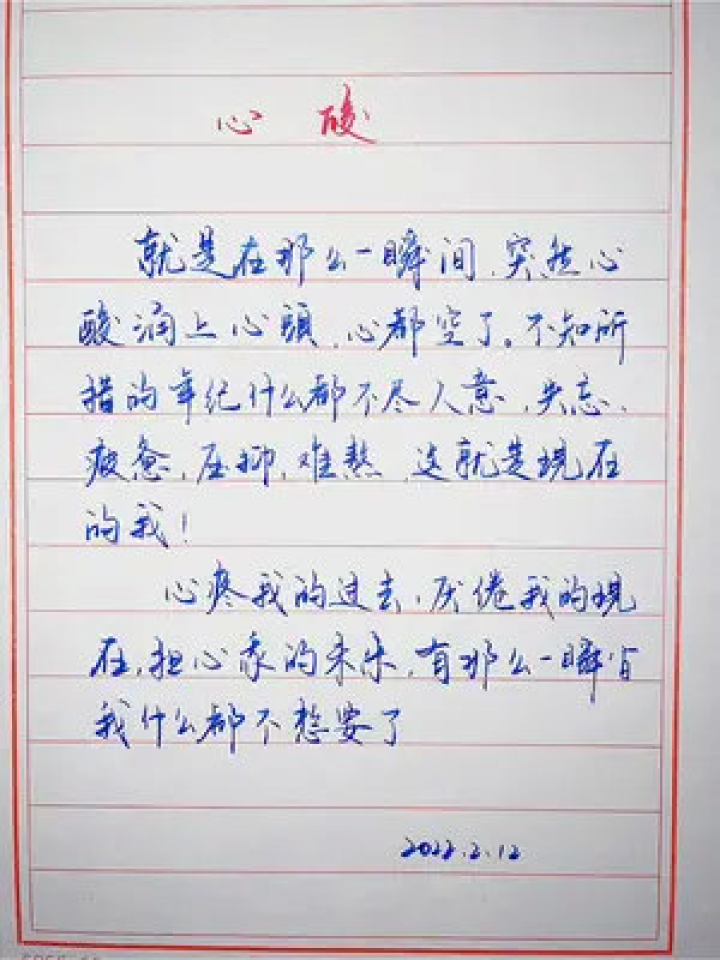 心酸
就是在那么一瞬间，突然心
酸涌上心頭，心都空了。不知所
措的年纪什么都不尽人意，失忘、
疲惫，压抑，难熬，这就是现在
的我！
心疼我的过去，厌倦我的现
在，担心我的未来，有那么一瞬间
我什么都不想要了
2022.2.12